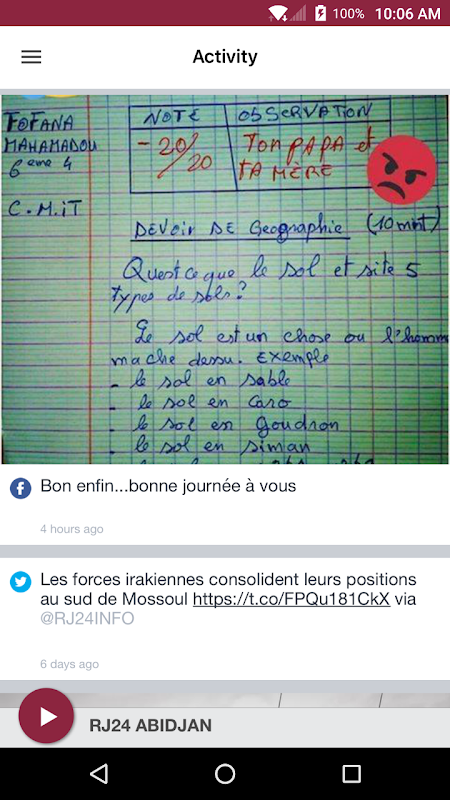 100% 10:06 AM
Activity
FOFANA
MAHAMADOU
6 eme 4
C.M.iT
NOTE OBSERVATION
-20/20 TON PAPA et
TA MÈRE
DEVOIR DE Geographie (10 mint)
Quest ce que le sol et site 5
types de sols?
Le sol est un chose ou l'homm
mache dessu. Exemple
- le sol en sable
- le sol en caro
- le sol en Goudron
- le sol en siman
Bon enfin...bonne journée à vous
4 hours ago
Les forces irakiennes consolident leurs positions
au sud de Mossoul https://t.co/FPQu181CkX via
@RJ24INFO
6 days ago
RJ24 ABIDJAN